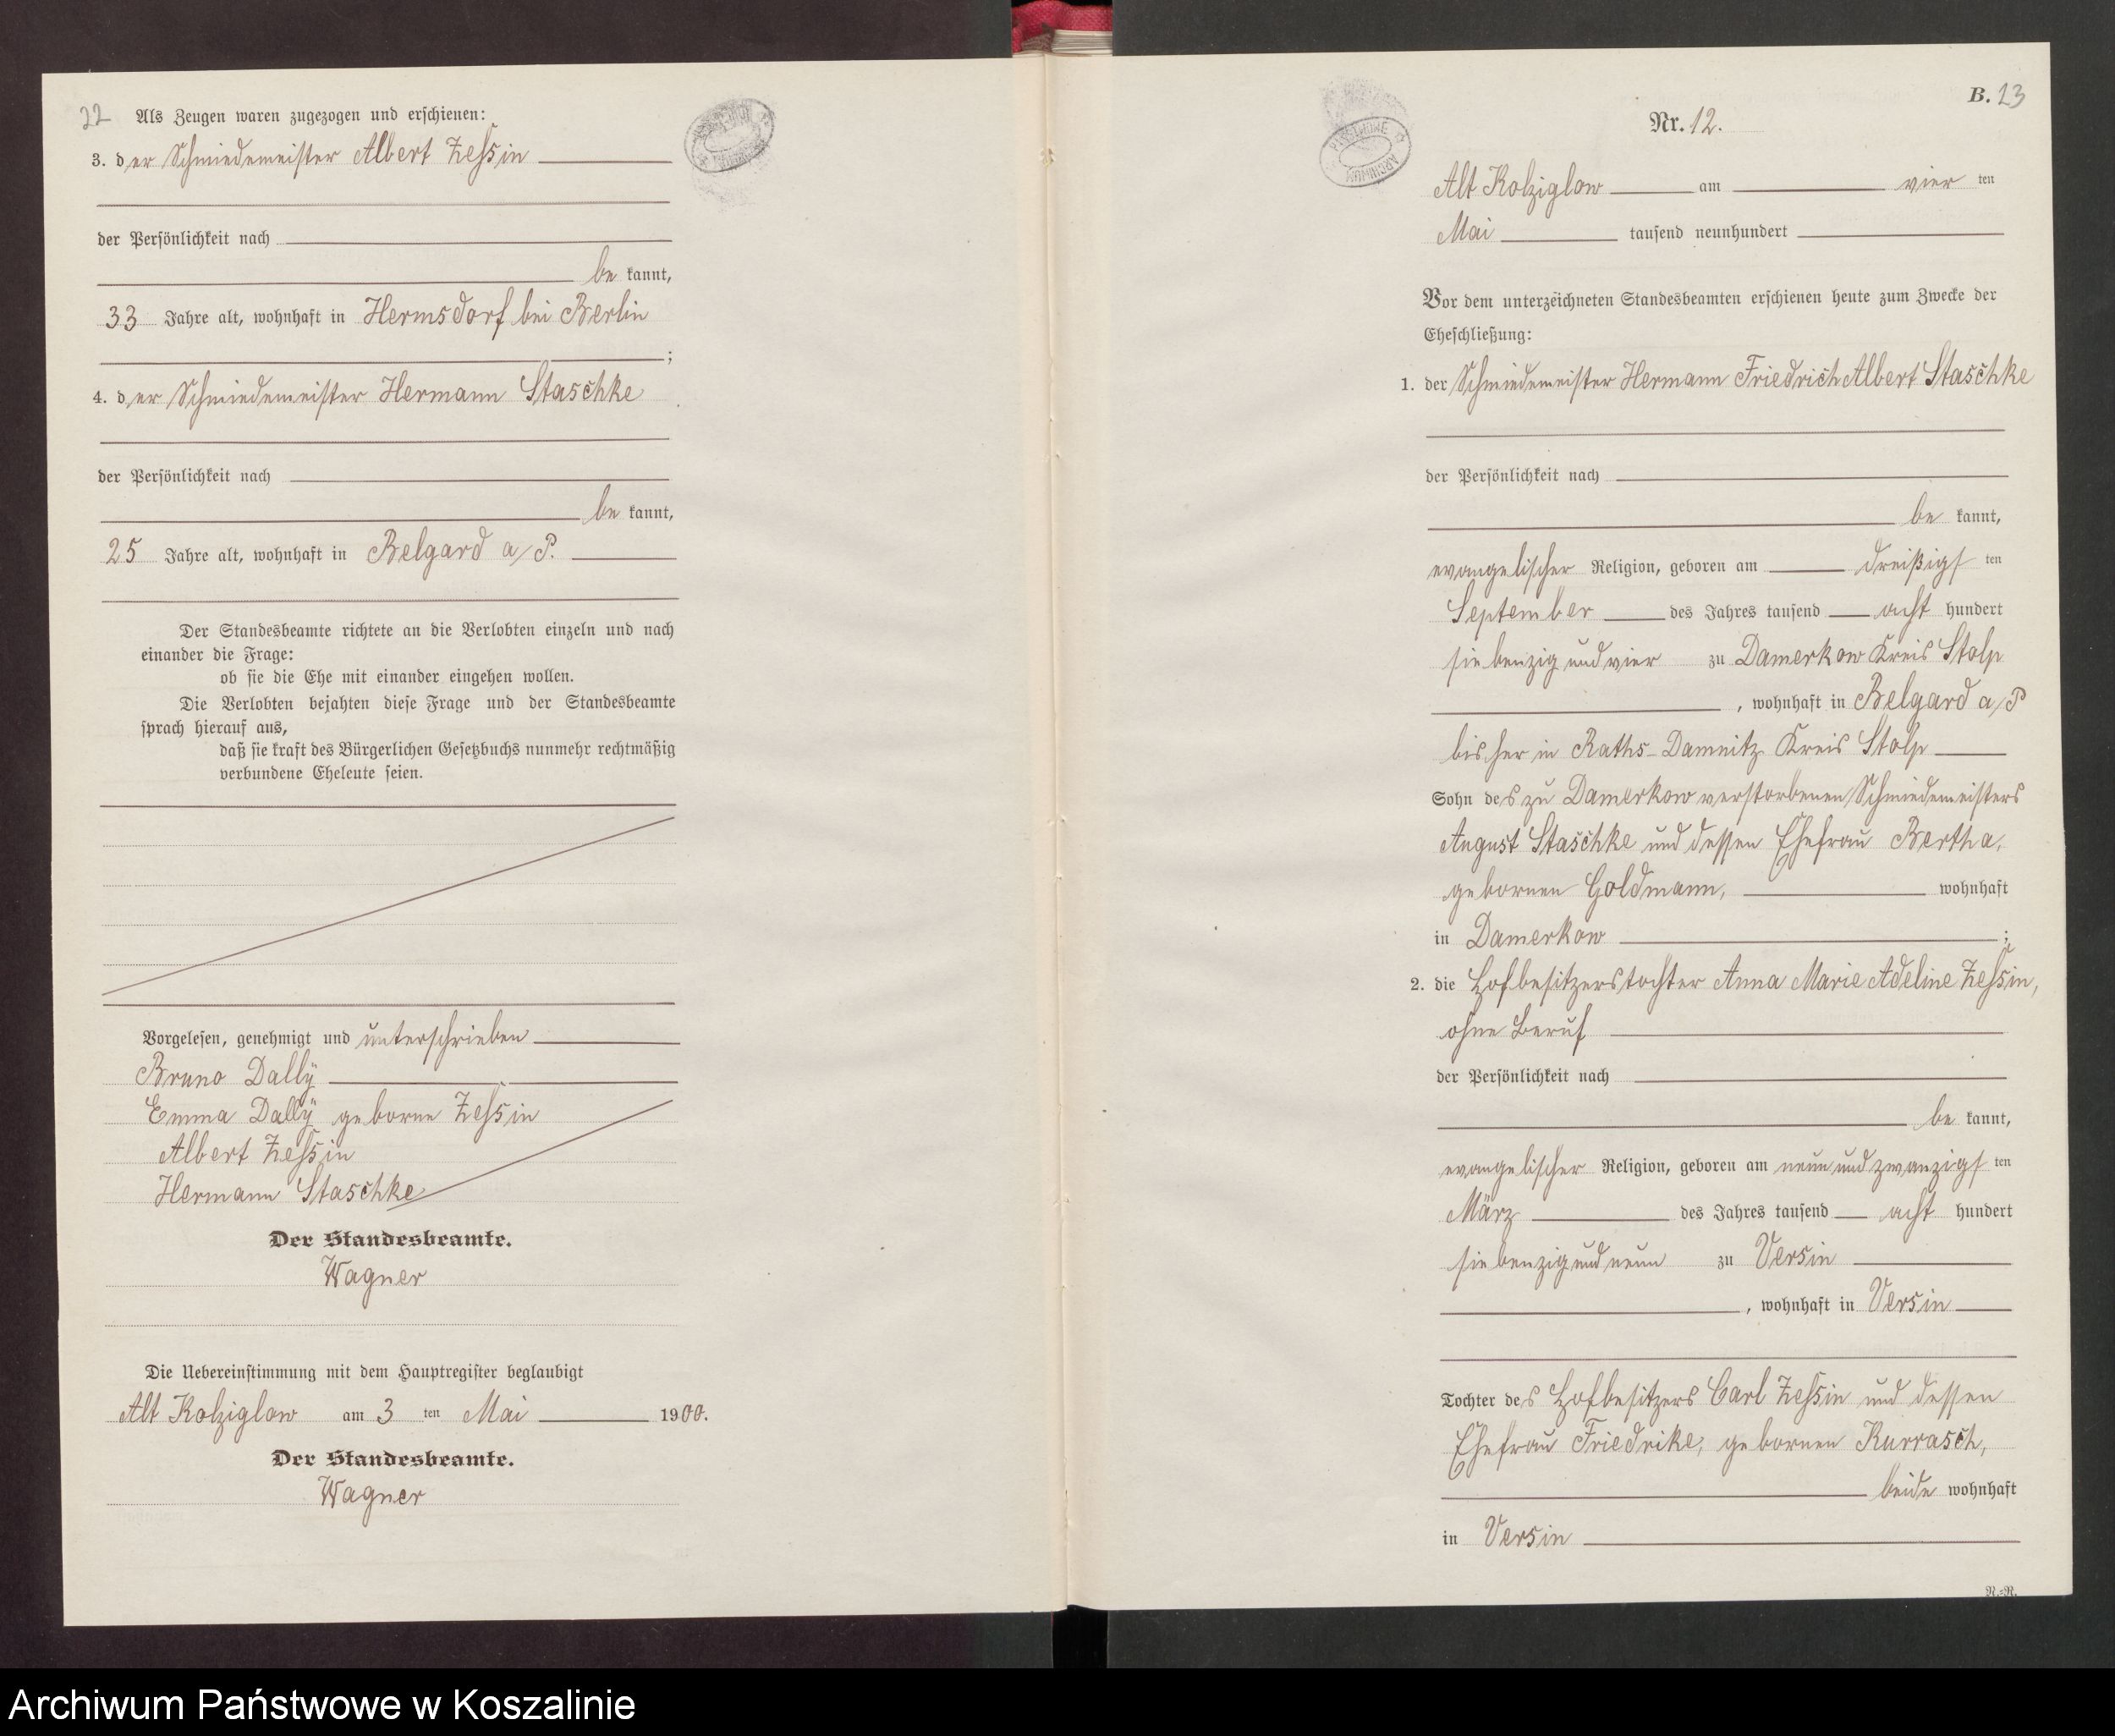 22
Als Zeugen waren zugezogen und erschienen:
3. der Schmiedemeister Albert Zessin
der Persönlichkeit nach
be kannt,
33 Jahre alt, wohnhaft in Hermsdorf bei Berlin
;
4. der Schmiedemeister Hermann Staschke
der Persönlichkeit nach
be kannt,
25 Jahre alt, wohnhaft in Belgard a/P.
Der Standesbeamte richtete an die Verlobten einzeln und nach
einander die Frage:
ob sie die Ehe mit einander eingehen wollen.
Die Verlobten bejahten diese Frage und der Standesbeamte
sprach hierauf aus,
daß sie kraft des Bürgerlichen Gesetzbuchs nunmehr rechtmäßig
verbundene Eheleute seien.
Vorgelesen, genehmigt und unterschrieben
Bruno Dally
Emma Dally geborne Zessin
Albert Zessin
Hermann Staschke
Der Standesbeamte.
Wagner
Die Uebereinstimmung mit dem Hauptregister beglaubigt
Alt Kolziglow am 3 ten Mai 1900.
Der Standesbeamte.
Wagner
B. 23
Nr. 12.
Alt Kolziglow am vier ten
Mai tausend neunhundert
Vor dem unterzeichneten Standesbeamten erschienen heute zum Zwecke der
Eheschließung:
1. der Schmiedemeister Hermann Friedrich Albert Staschke
der Persönlichkeit nach
be kannt,
evangelischer Religion, geboren am dreißigs ten
September des Jahres tausend acht hundert
siebenzig und vier zu Damerkow Kreis Stolp
, wohnhaft in Belgard a/P
bisher in Raths-Damnitz Kreis Stolp
Sohn des zu Damerkow verstorbenen Schmiedemeisters
August Staschke und dessen Ehefrau Bertha,
gebornen Goldmann, wohnhaft
in Damerkow ;
2. die Hofbesitzerstochter Anna Marie Adeline Zessin,
ohne Beruf
der Persönlichkeit nach
be kannt,
evangelischer Religion, geboren am neun und zwanzigs ten
März des Jahres tausend acht hundert
siebenzig und neun zu Versin
, wohnhaft in Versin
Tochter des Hofbesitzers Carl Zessin und dessen
Ehefrau Friedrike, gebornen Kurrasch,
beide wohnhaft
in Versin
R.-R.
Archiwum Państwowe w Koszalinie